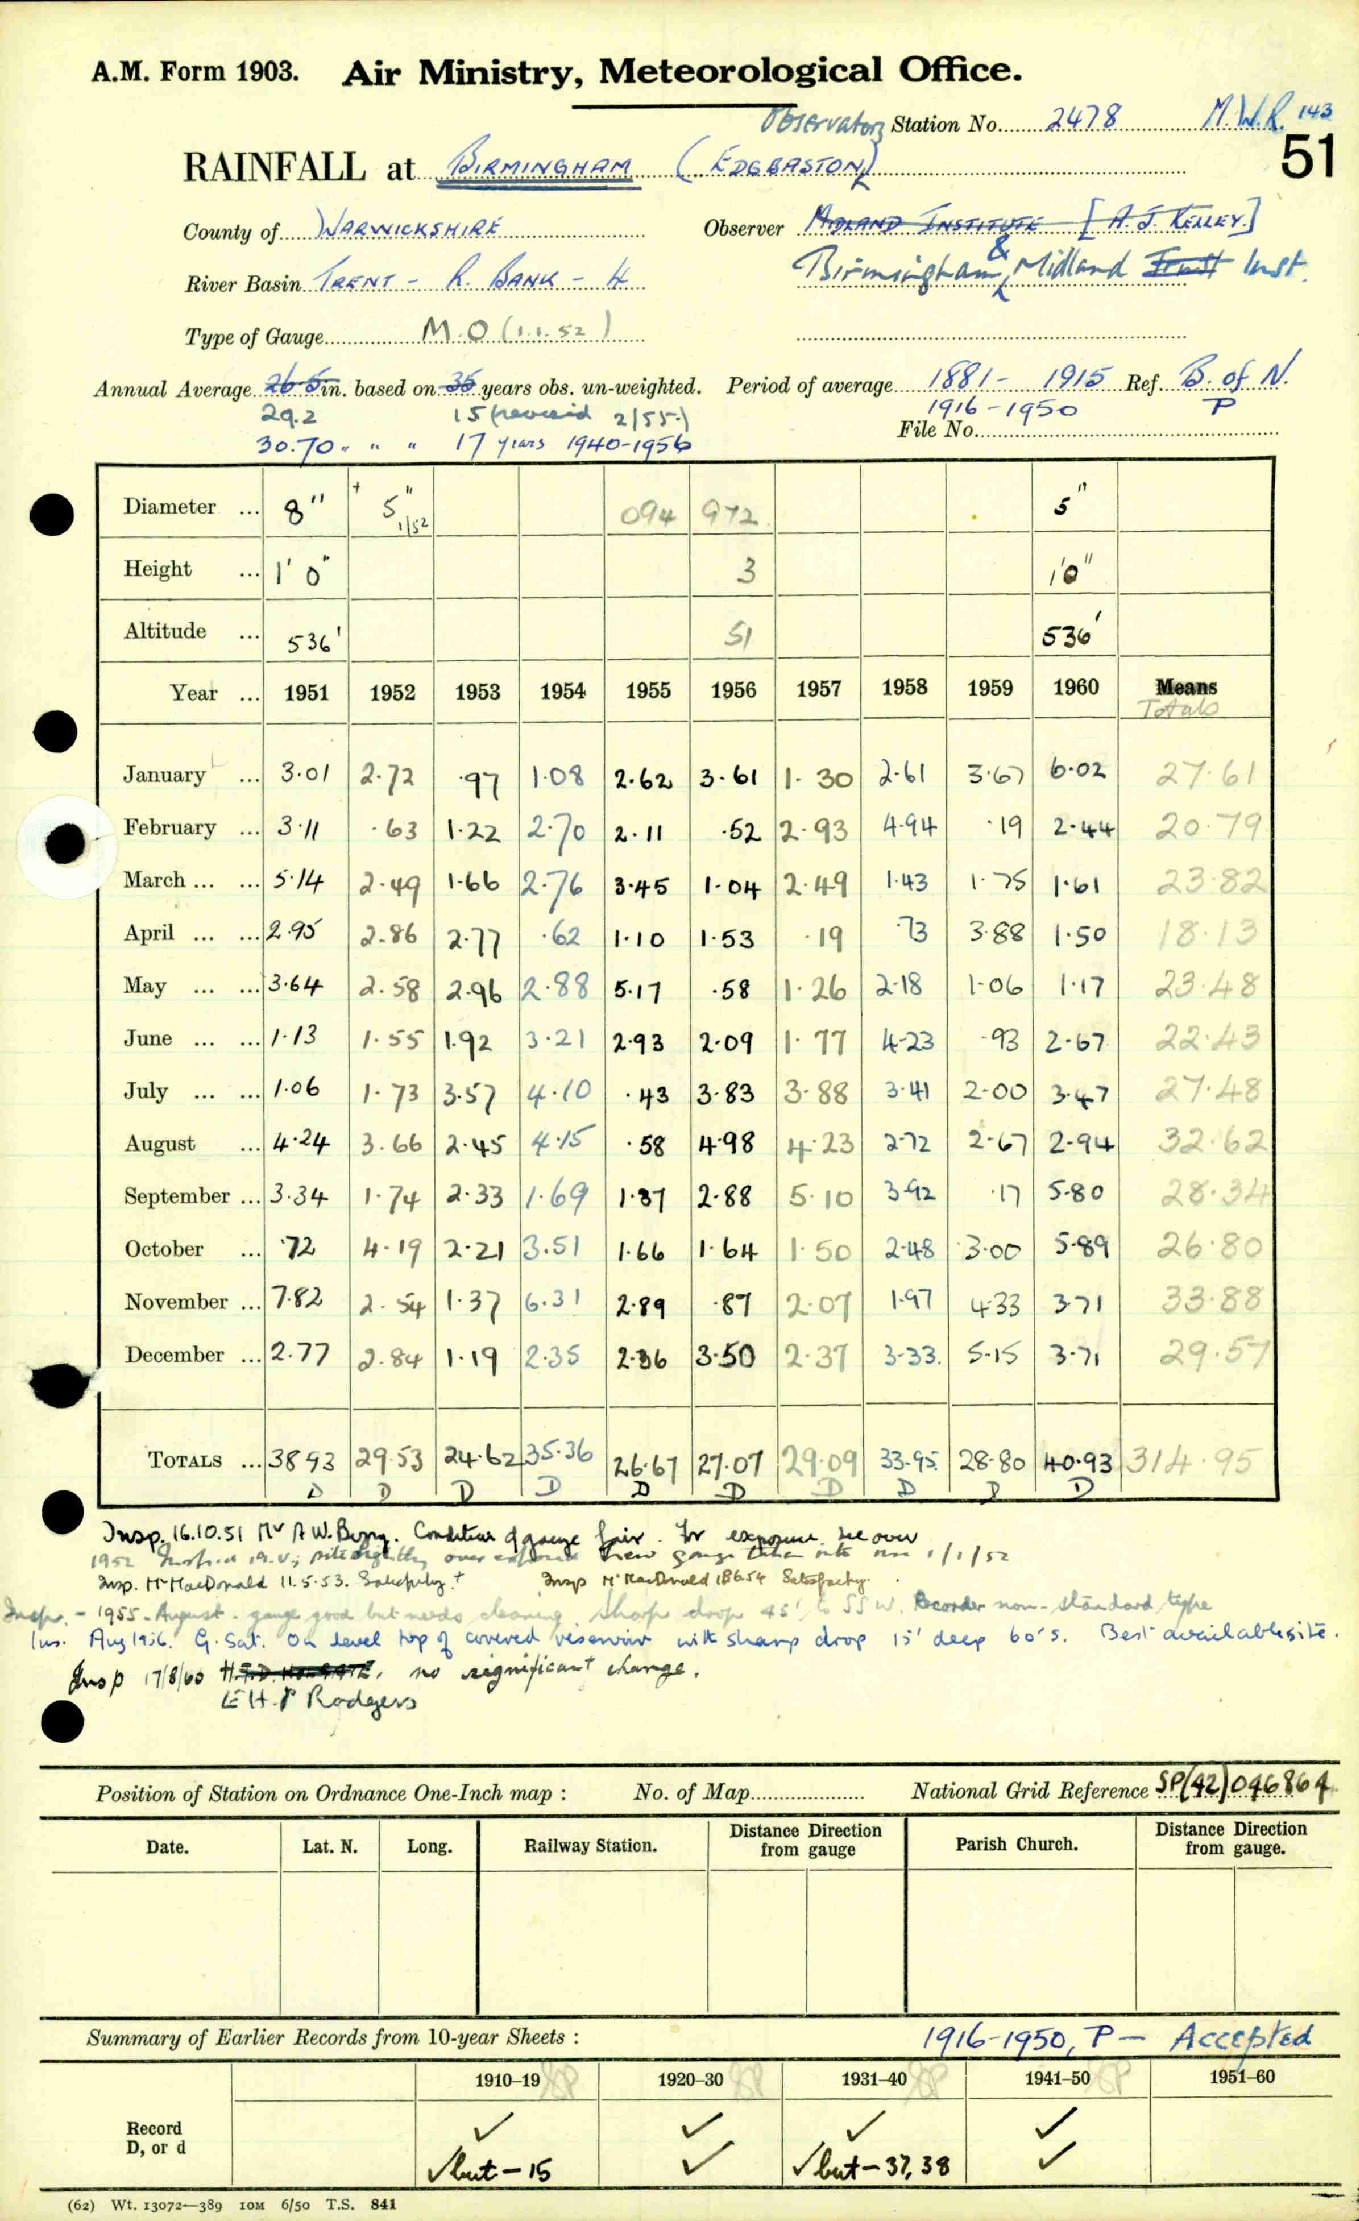 A.M. Form 1903. Air Ministry, Meteorological Office.
Observatory Station No. 2478 M.W.R. 143
RAINFALL at BIRMINGHAM (EDGBASTON) 51
County of WARWICKSHIRE Observer MIDLAND INSTITUTE [A. J. KELLEY.]
River Basin TRENT - R. BANK - 4 Birmingham & Midland Inst.
Type of Gauge M.O (1.1.52)
Annual Average 26.5 in. based on 35 years obs. un-weighted. Period of average 1881- 1915 Ref. B. of N.
29.2 15 (revised 2/55) 1916-1950 P
File No.
30.70 " " " 17 years 1940-1956
Diameter ... 8" + 5" 1/52 094 972 5"
Height ... 1' 0" 3 1'0"
Altitude ... 536' 51 536'
Year ... 1951 1952 1953 1954 1955 1956 1957 1958 1959 1960 Means
Totals
January ... 3.01 2.72 .97 1.08 2.62 3.61 1.30 2.61 3.67 6.02 27.61
February ... 3.11 .63 1.22 2.70 2.11 .52 2.93 4.94 .19 2.44 20.79
March ... ... 5.14 2.49 1.66 2.76 3.45 1.04 2.49 1.43 1.75 1.61 23.82
April ... ... 2.95 2.86 2.77 .62 1.10 1.53 .19 .73 3.88 1.50 18.13
May ... ... 3.64 2.58 2.96 2.88 5.17 .58 1.26 2.18 1.06 1.17 23.48
June ... ... 1.13 1.55 1.92 3.21 2.93 2.09 1.77 4.23 .93 2.67 22.43
July ... ... 1.06 1.73 3.57 4.10 .43 3.83 3.88 3.41 2.00 3.47 27.48
August ... 4.24 3.66 2.45 4.15 .58 4.98 4.23 2.72 2.67 2.94 32.62
September ... 3.34 1.74 2.33 1.69 1.37 2.88 5.10 3.92 .17 5.80 28.34
October ... .72 4.19 2.21 3.51 1.66 1.64 1.50 2.48 3.00 5.89 26.80
November ... 7.82 2.54 1.37 6.31 2.89 .87 2.07 1.97 4.33 3.71 33.88
December ... 2.77 2.84 1.19 2.35 2.36 3.50 2.37 3.33 5.15 3.71 29.57
TOTALS ... 38.93 29.53 24.62 35.36 26.67 27.07 29.09 33.95 28.80 40.93 314.95
D D D D D D D D D D
Insp. 16.10.51 Mr A W. Berry. Condition of gauge fair. For exposure see over
1952 site slightly over exposed New gauge taken into use 1/1/52
Insp. Mr MacDonald 11.5.53. Satisfactory. + Insp Mr MacDonald 18.6.54 Satisfactory.
Insp. - 1955 - August - gauge good but needs cleaning. Sharp drop 45' to SSW. Recorder non-standard type
Ins. Aug 1956. G. Sat. On level top of covered reservoir with sharp drop 15' deep 60' S. Best available site.
Insp 17/8/60 no significant change.
E H. P Rodgers
Position of Station on Ordnance One-Inch map : No. of Map National Grid Reference SP(42)046864
Date. Lat. N. Long. Railway Station. Distance Direction from gauge Parish Church. Distance Direction from gauge.
Summary of Earlier Records from 10-year Sheets : 1916-1950, P - Accepted
1910-19 1920-30 1931-40 1941-50 1951-60
Record ✓ ✓ ✓ ✓
D, or d ✓but - 15 ✓ ✓but - 37, 38 ✓
(62) Wt. 13072—389 10M 6/50 T.S. 841